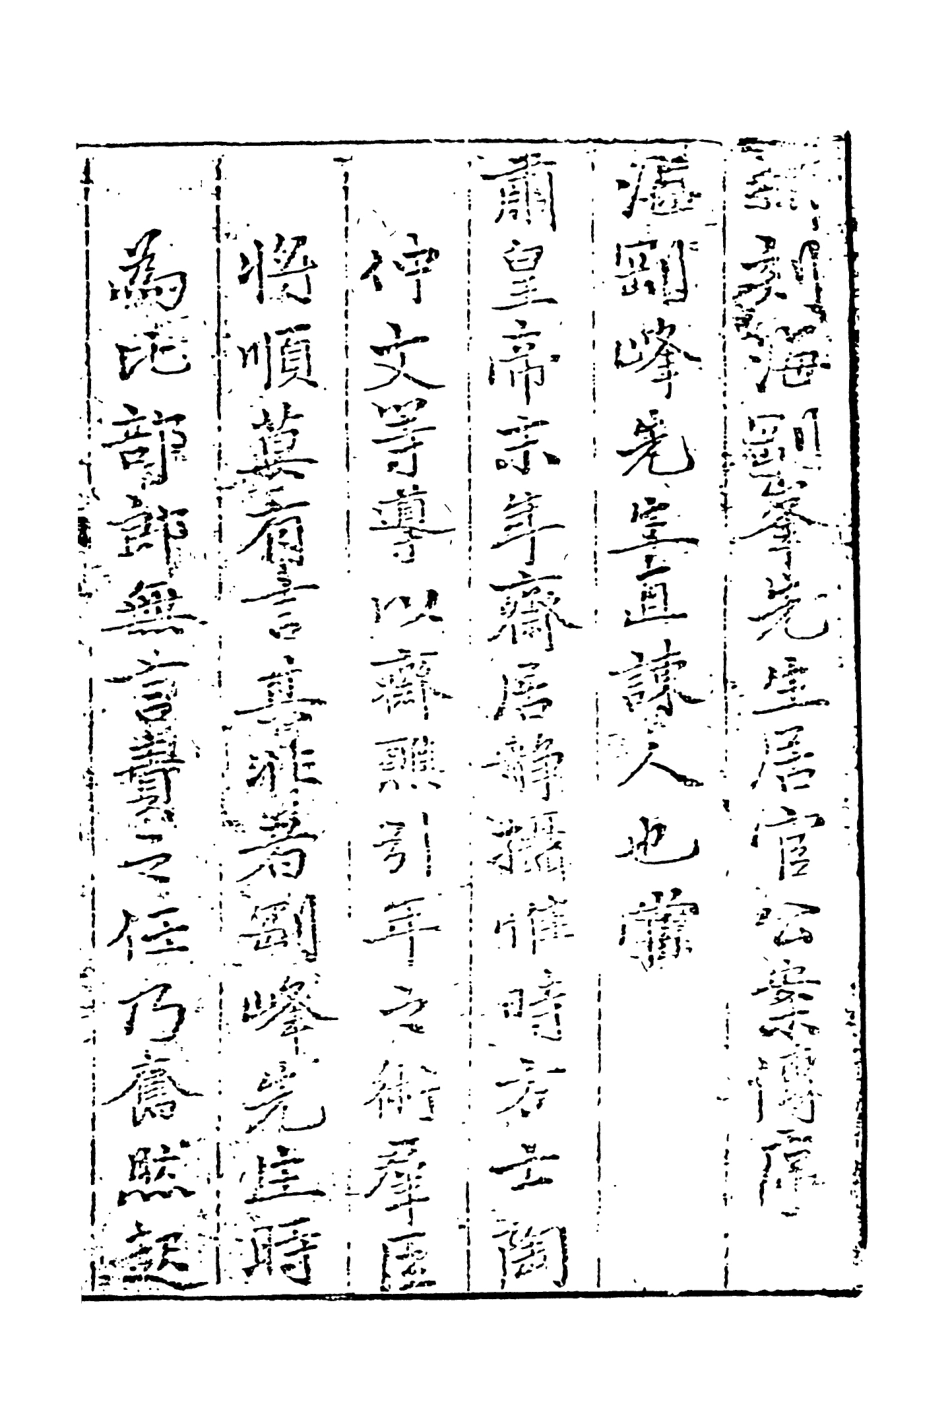 新刻海剛峯先生居官公案傳序
海剛峰先生直諫人也當
肅皇帝末年齋居靜攝惟時方士陶
仲文等導以齋醮引年之術羣臣
將順莫有言其非者剛峰先生時
為比部郎無言責之任乃奮然起